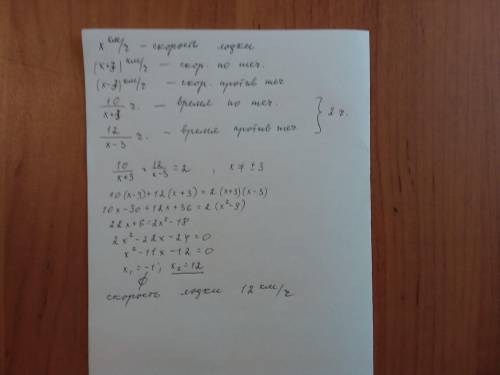 x км/ч – скорость лодки
(x+3) км/ч – скор. по теч.
(x-3) км/ч – скор. против теч
10/(x+3) ч. – время по теч.
12/(x-3) ч. – время против теч. } 2 ч.
10/(x+3) + 12/(x-3) = 2 , x ≠ ±3
10(x-3)+12(x+3)=2(x+3)(x-3)
10x-30+12x+36=2(x²-9)
22x+6=2x²-18
2x²-22x-24=0
x²-11x-12=0
x₁=-1; x₂=12
∅
скорость лодки 12 км/ч